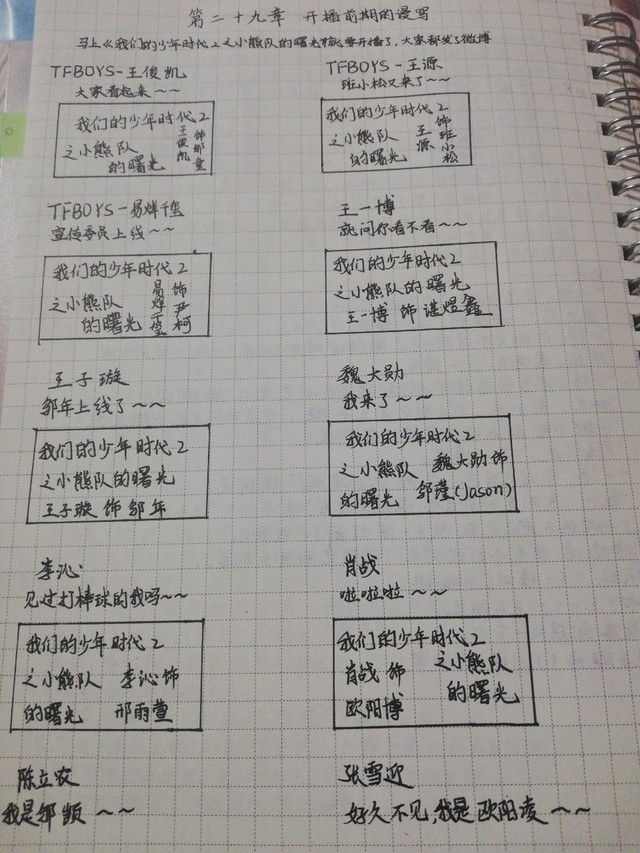 第二十九章 开播前期的漫写
马上《我们的少年时代2之小熊队的曙光》就要开播了,大家都发了微博
TFBOYS-王俊凯
大家看起来~~
我们的少年时代2
之小熊队
的曙光
王俊凯
饰邬童
TFBOYS-王源
班小松又来了~~
我们的少年时代2
之小熊队
的曙光
王源
饰班小松
TFBOYS-易烊千玺
宣传委员上线~~
我们的少年时代2
之小熊队
的曙光
易烊千玺
饰尹柯
王一博
就问你看不看~~
我们的少年时代2
之小熊队的曙光
王一博 饰 谌煜鑫
王子璇
邹年上线了~~
我们的少年时代2
之小熊队的曙光
王子璇 饰 邹年
魏大勋
我来了~~
我们的少年时代2
之小熊队 魏大勋 饰
的曙光 邹滢(Jason)
李沁
见过打棒球的我吗~~
我们的少年时代2
之小熊队 李沁 饰
的曙光 邢雨萱
肖战
啦啦啦~~
我们的少年时代2
肖战 饰 之小熊队
欧阳博 的曙光
陈立农
我是邹颢~~
张雪迎
好久不见,我是欧阳凌~~